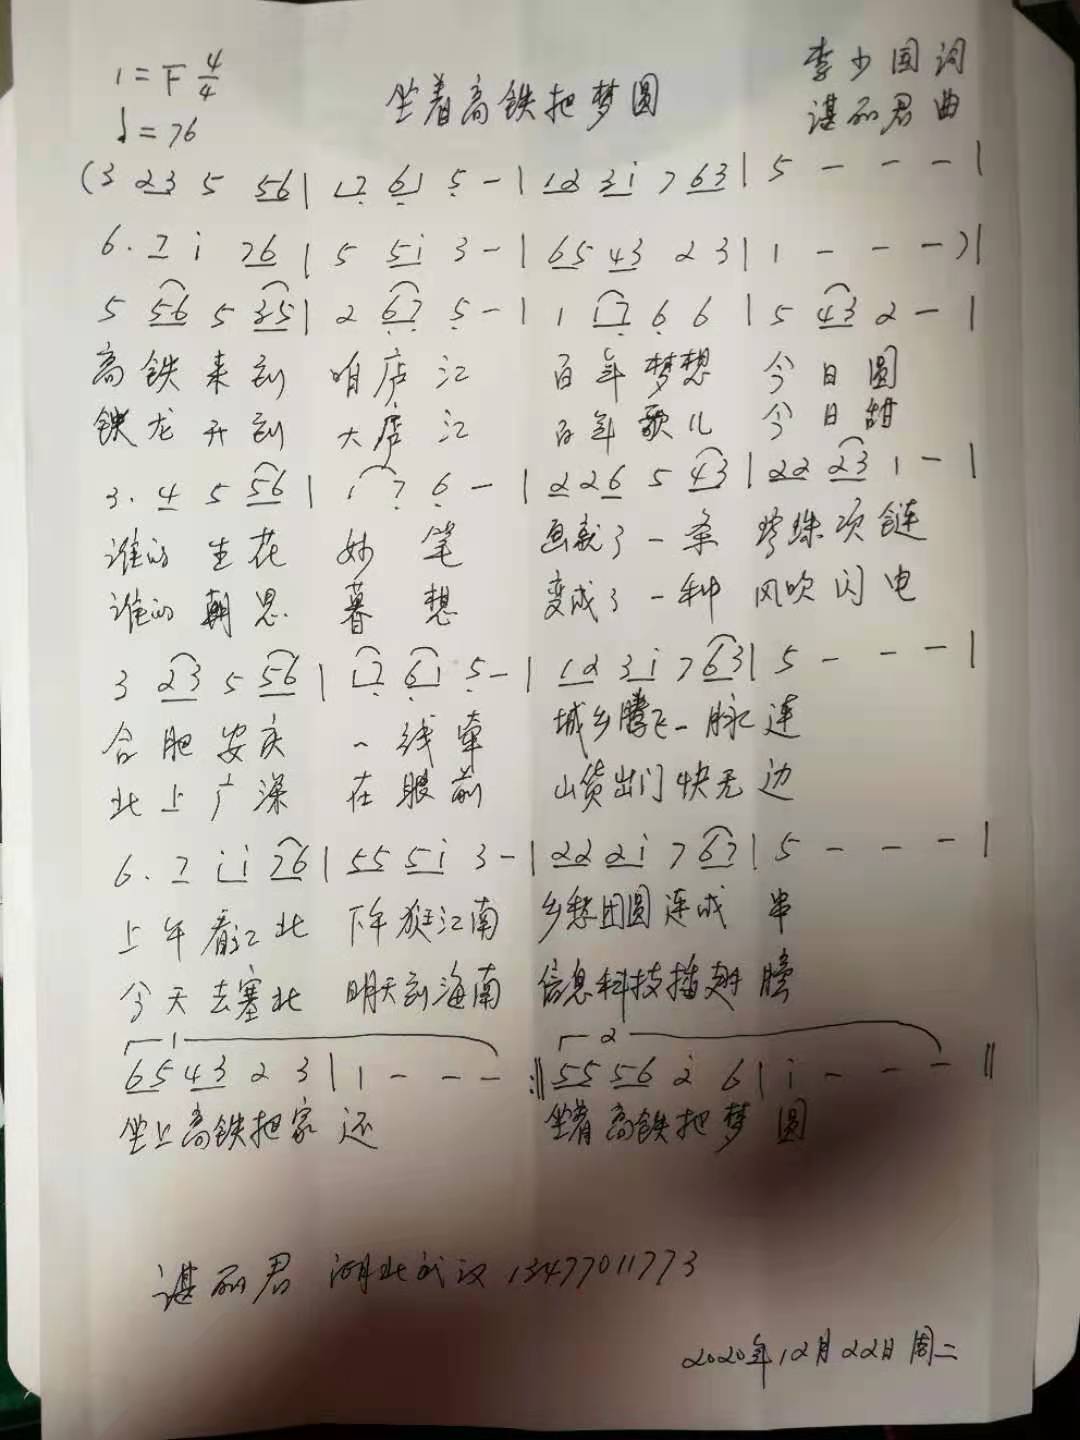 1=F 4/4
坐着高铁把梦圆
李少国词
♩=76
谌丽君曲
(3 23 5 56| 17 61 5 -| 12 3i 7 63| 5 - - -|
6. 7 i 76| 5 5i 3 -| 65 43 2 3| 1 - - -)|
5 56 5 35| 2 67 5 -| 1 17 6 6| 5 43 2 -|
高铁来到 咱庐江 百年梦想 今日圆
铁龙开到 大庐江 百年歌儿 今日甜
3. 4 5 56| 1 7 6 -| 2 26 5 43| 22 23 1 -|
谁的生花 妙笔 画就了一条 珍珠项链
谁的朝思 暮想 变成了一种 风吹闪电
3 23 5 56| 17 61 5 -| 12 3i 7 63| 5 - - -|
合肥安庆 一线牵 城乡腾飞一脉连
北上广深 在眼前 山货出门快无边
6. 7 ii 76| 55 5i 3 -| 22 2i 7 67| 5 - - -|
上午看江北 下午逛江南 乡愁团圆连成串
今天去塞北 明天到海南 信息科技插翅膀
1 2
65 43 2 3| 1 - - - :‖ 55 56 2 6| i - - - ‖
坐上高铁把家还 坐着高铁把梦圆
谌丽君 湖北武汉 13477011773
2020年12月22日 周二